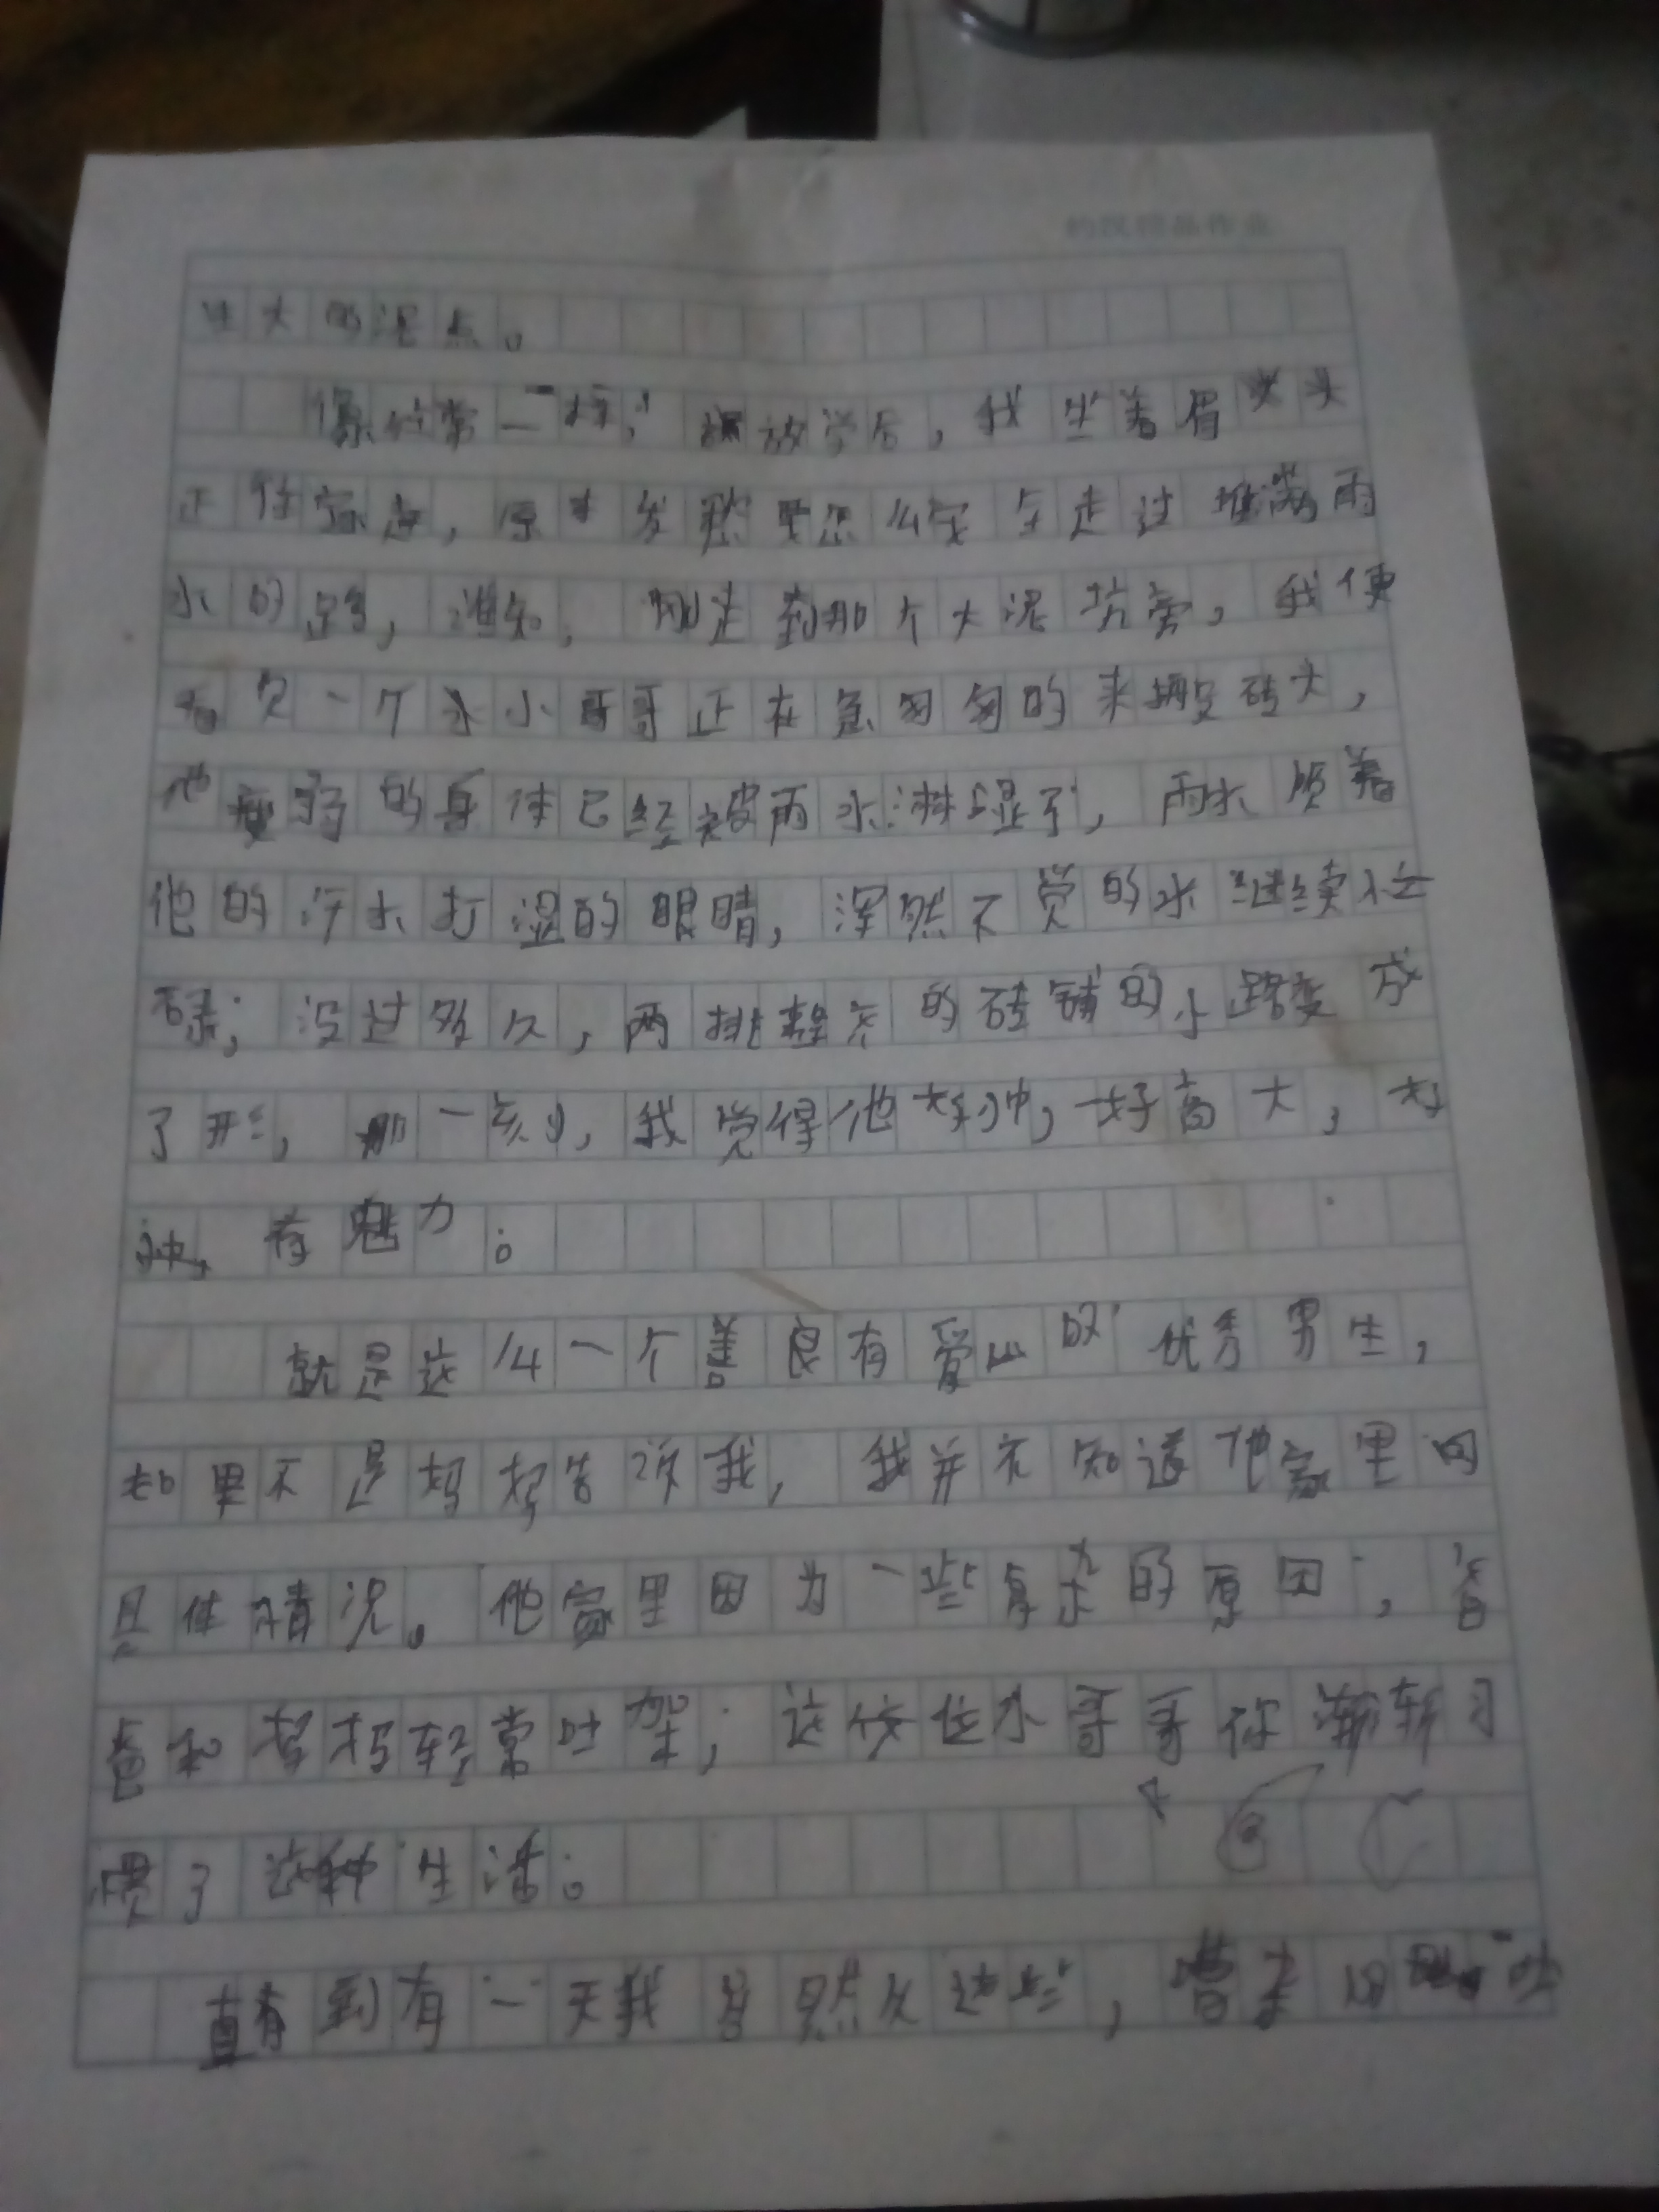 大的泥点。
像往常一样,放学后,我坐着眉头
正往家走,原本发愁要怎么安全走过堆满雨
水的路,谁知,刚走到那个大泥坑旁,我便
看见一个水小哥哥正在急匆匆的来搬砖头,
他瘦弱的身体已经被雨水淋湿了,雨水顺着
他的汗水打湿的眼睛,浑然不觉的水继续忙
碌;没过多久,两排整齐的砖铺的小路变成
了形,那一刻,我觉得他好帅,好高大,好
有魅力。
就是这么一个善良有爱心的优秀男生,
如果不是妈妈告诉我,我并不知道他家里的
具体情况。他家里因为一些复杂的原因,爸
爸和妈妈轻常吵架;这位水哥哥你渐渐习
惯了这种生活。
直到有一天我